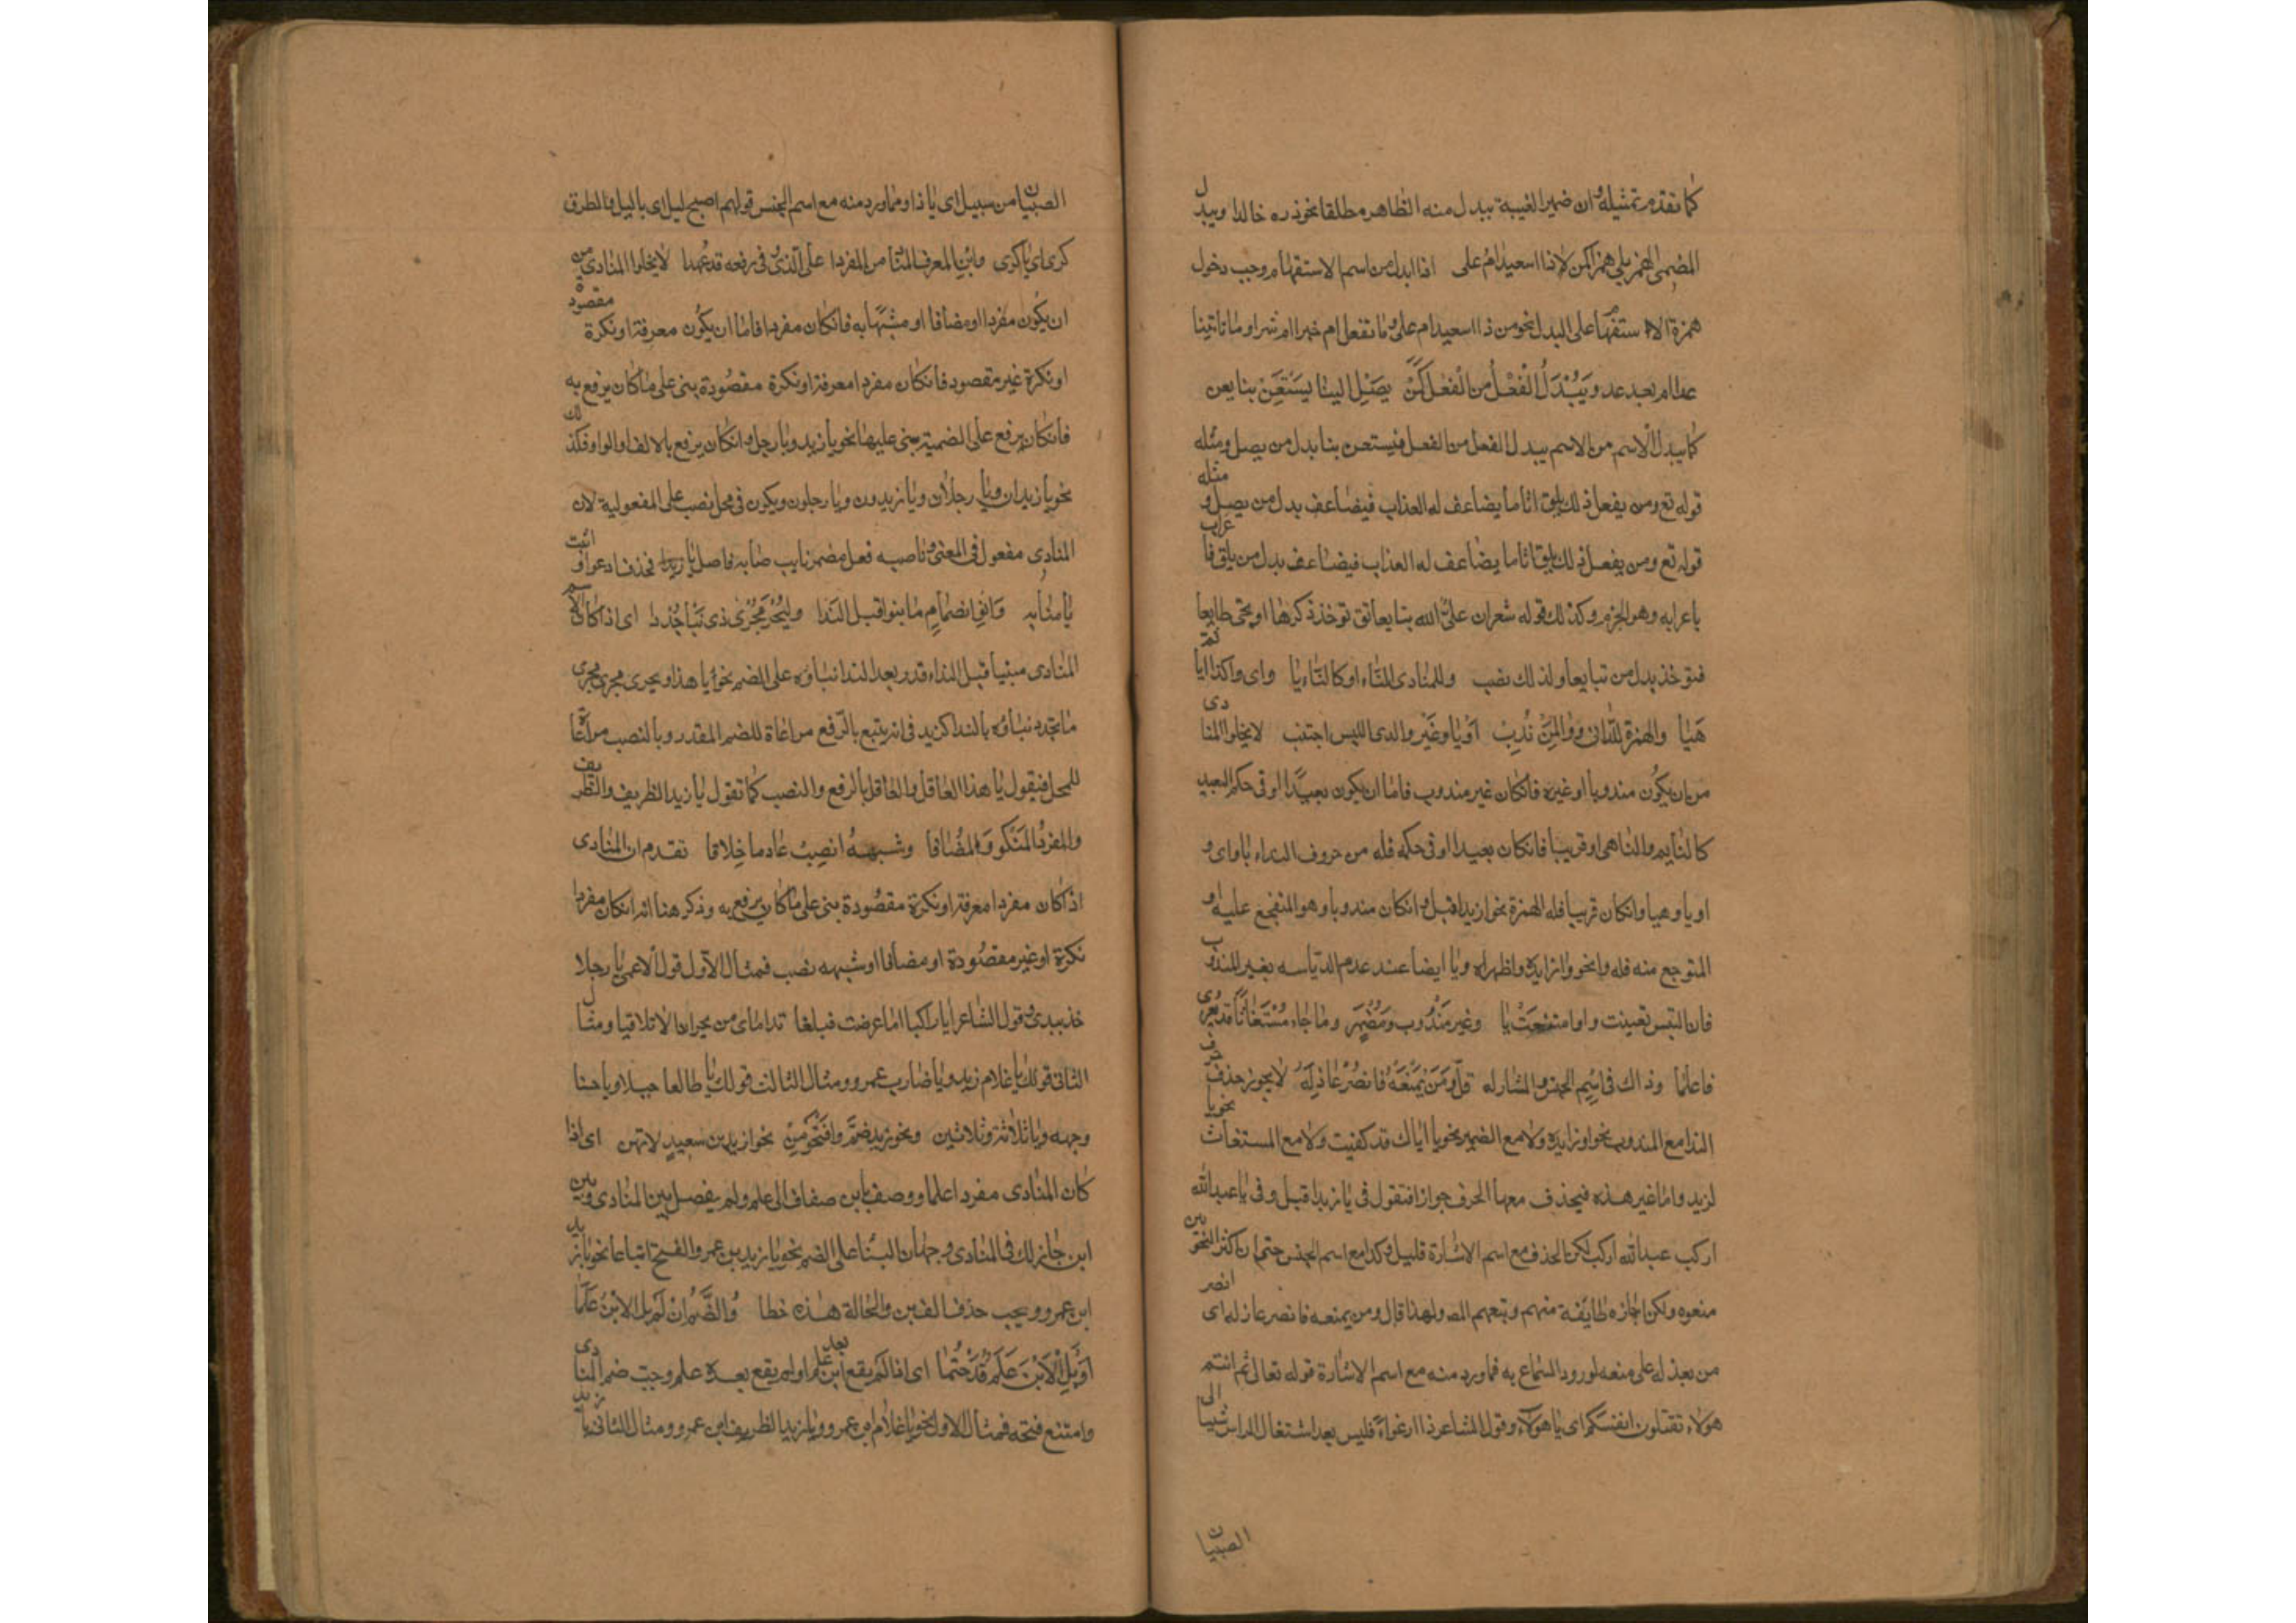 كما تقدم تمثيله وان ضمير الغيبة يبدل منه الظاهر مطلقا نحو زره خالدا ويبدل
المضمن الهمز يلي همزا كمن ذا اسعيد ام علي اذا ابدل من اسم الاستفهام وجب دخول
همزة الاستفهام على البدل نحو من ذا اسعيد ام علي وما تفعل ام خيرا ام شرا وما تاتينا
غدا ام بعد غد ويبدل الفعل من الفعل كمن يصل الينا يستعن بنا يعن
كما يبدل الاسم من الاسم يبدل الفعل من الفعل فيستعن بنا بدل من يصل ومثله
قوله تع ومن يفعل ذلك يلق اثاما يضاعف له العذاب فيضاعف بدل من يصل و مثله
قوله تع ومن يفعل ذلك يلق اثاما يضاعف له العذاب فيضاعف بدل من يلق فا عراب
باعرابه وهو الجزم وكذلك قوله شعر ان علي الله بتايعا تق توخذ كرها او تجئ طايعا
فتوخذ بدل من تبايعا ولذلك نصب وللمنادى للناء او كالناء يا واي واكذا ايا ثم
هيا والهمزة للداني ووا لمن ندب او يا وغير والدى اللبس اجتنب لا يخلوا المنادى
من ان يكون مندوبا او غيره فانكان غير مندوب فاما ان يكون بعيدا او في حكم البعيد
كالنايم والناهي او قريبا فانكان بعيدا او في حكمه فله من حروف النداء يا واي و
او يا وهيا وانكان قريبا فله الهمزة نحو ازيد اقبل وانكان مندوبا وهو المتفجع عليه او
المتوجع منه فله وا نحو وا زايده واظهراه ويا ايضا عند عدم التباسه بغير المندوب
فان التبس تعينت وا وامتنعت يا وغير مندوب ومضمر وما جاء مستغاثا قد يعرى
فاعلما وذاك في اسم الجنس والمشار له قل ومن يمنعه فانصر عاذله لا يجوز حذف حرف
الندا مع المندوب نحو وا زايده ولا مع الضمير نحو يا اياك قد كفيت ولا مع المستغاث نحو يا
لزيد واما غير هذه فيحذف معها الحرف جوازا فتقول في يا زيد اقبل وفي يا عبدالله
اركب عبدالله اركب لكن الحذف مع اسم الاشارة قليل وكذا مع اسم الجنس حتى ان اكثر النحويين
منعوه ولكن اجازه طايفة منهم وتبعهم المص ولهذا قال ومن يمنعه فانصر عاذله اى انصر
من يعذله على منعه لورود السماع به فما ورد منه مع اسم الاشارة قوله تعالى ثم انتم
هولاء تقتلون انفسكم اى يا هولاء وقول الشاعر ذا ارعواء فليس بعد اشتغال الراس شيبا الى
الصبيان
الصبيان من سبيل اى يا ذا ومما ورد منه مع اسم الجنس قولهم اصبح ليل اى يا ليل واطرق
كرى اى يا كرى وابن المعرف المنادى المفردا على الذى في رفعه قد عهدا لا يخلوا المنادى من
ان يكون مفردا او مضافا او مشبها به فانكان مفردا فاما ان يكون معرفة او نكرة مقصودة
او نكرة غير مقصود فانكان مفردا معرفة او نكرة مقصودة بنى على ما كان يرفع به
فانكان يرفع على الضمية بنى عليها نحو يا زيد ويا رجل وانكان يرفع بالالف والواو فكذلك
نحو يا زيدان ويا رجلان ويا زيدون ويا رجلون ويكون في محل نصب على المفعولية لان
المنادى مفعول في المعنى وناصبه فعل مضمر نايب منابه فاصل يا زيد ادعوا فحذف ادعوا و اثبت
يا منابه وانو انضمام ما بنوا قبل الندا وليجر مجرى ذى بناء جددا اى اذا كان الاسم
المنادى مبنيا قبل النداء قدر بعد الندا بناؤه على الضم نحو يا هذا ويجرى مجرى
ما تجدد بناؤه بالندا كزيد في انه يتبع بالرفع مراعاة للضم المقدر وبالنصب مراعاة
للمحل فتقول يا هذا العاقل والعاقل بالرفع والنصب كما تقول يا زيد الظريف والظريف
والمفرد المنكور والمضافا وشبهه انصب عادما خلافا تقدم ان المنادى
اذا كان مفردا معرفة او نكرة مقصودة بنى على ما كان يرفع به وذكر هنا انه انكان مفردا
نكرة او غير مقصودة او مضافا او شبهه نصب فمثال الاول قول الاعمى يا رجلا
خذ بيدى وقول الشاعر ايا راكبا اما عرضت فبلغا نداماى من نجران الا تلاقيا ومثال
الثانى قولك يا غلام زيد ويا ضارب عمرو ومثال الثالث قولك يا طالعا جبلا ويا حسنا
وجهه ويا ثلاثة وثلاثين ونحو زيد ضم وافتحن من نحو ازيد بن سعيد لا تهن اى اذا
كان المنادى مفردا علما ووصف بابن مضاف الى علم ولم يفصل بين المنادى وبين
ابن جاز لك في المنادى وجهان البناء على الضم نحو يا زيد بن عمرو والفتح اتباعا نحو يا زيد
ابن عمرو ويجب حذف الف بن والحالة هذه خطا والضم ان لم يل الابن علما
او يل الابن علم قد حتما اى اذا لم يقع ابن بعد علم او لم يقع بعده علم وجب ضم المنادى
وامتنع فتحه فمثال الاول نحو يا غلام ابن عمرو ويا زيد الظريف ابن عمرو ومثال الثانى يا زيد